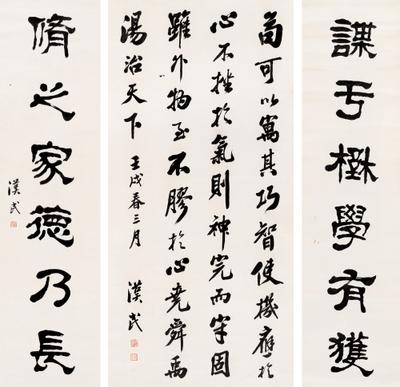 謀于楙學有獲
苟可以寓其巧智使機應於
心不挫於氣則神完而守固
雖外物至不膠於心堯舜禹
湯治天下 壬戌春三月 漢民
脩之家德乃長
漢民